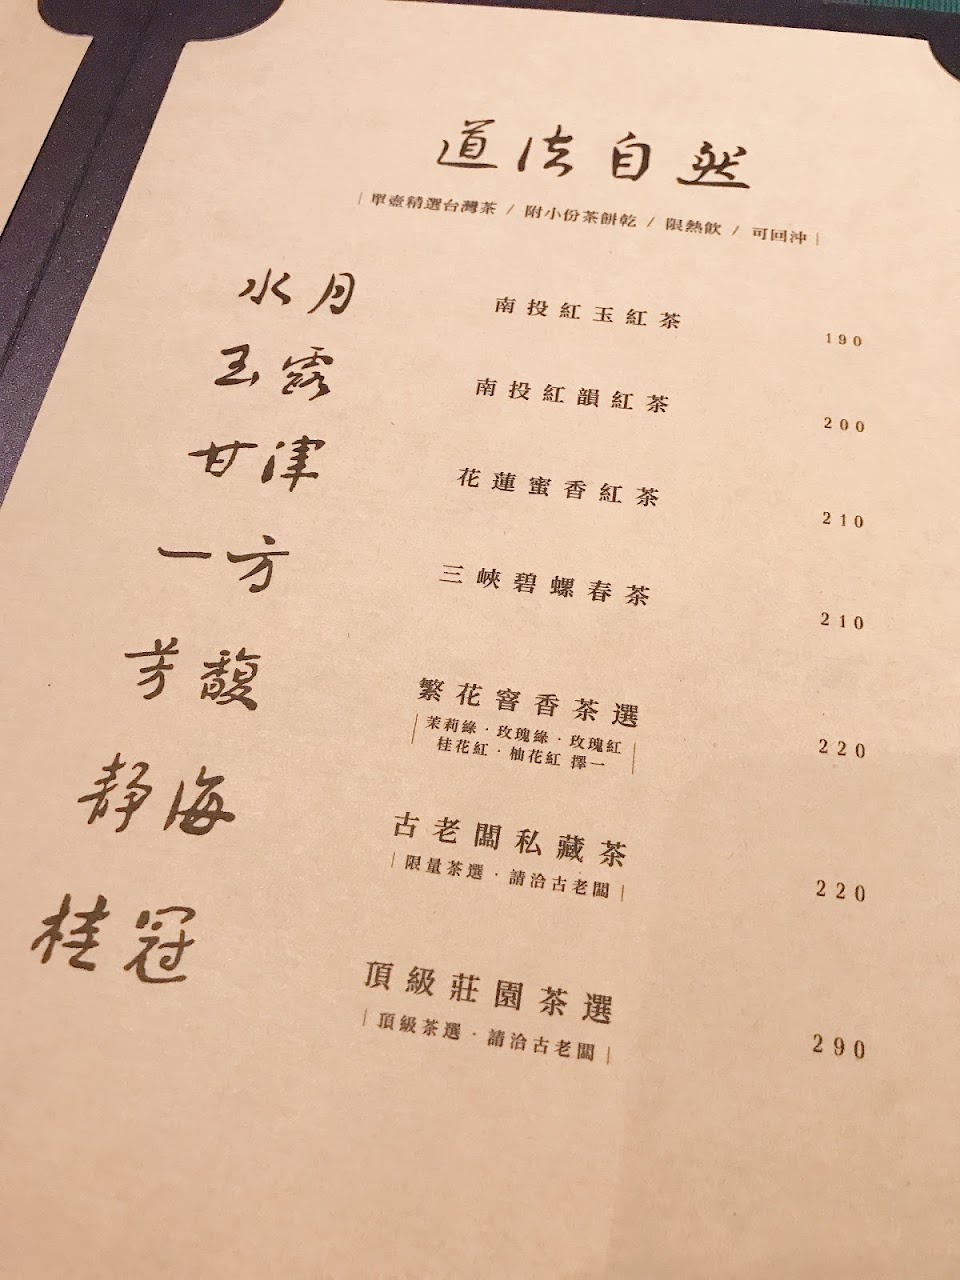 道法自然
｜單壺精選台灣茶 / 附小份茶餅乾 / 限熱飲 / 可回沖｜
水月 南投紅玉紅茶 190
玉露 南投紅韻紅茶 200
甘津 花蓮蜜香紅茶 210
一方 三峽碧螺春茶 210
芳馥 繁花窨香茶選 220
｜茉莉綠・玫瑰綠・玫瑰紅
桂花紅・柚花紅 擇一｜
靜海 古老闆私藏茶 220
｜限量茶選・請洽古老闆｜
桂冠 頂級莊園茶選 290
｜頂級茶選・請洽古老闆｜